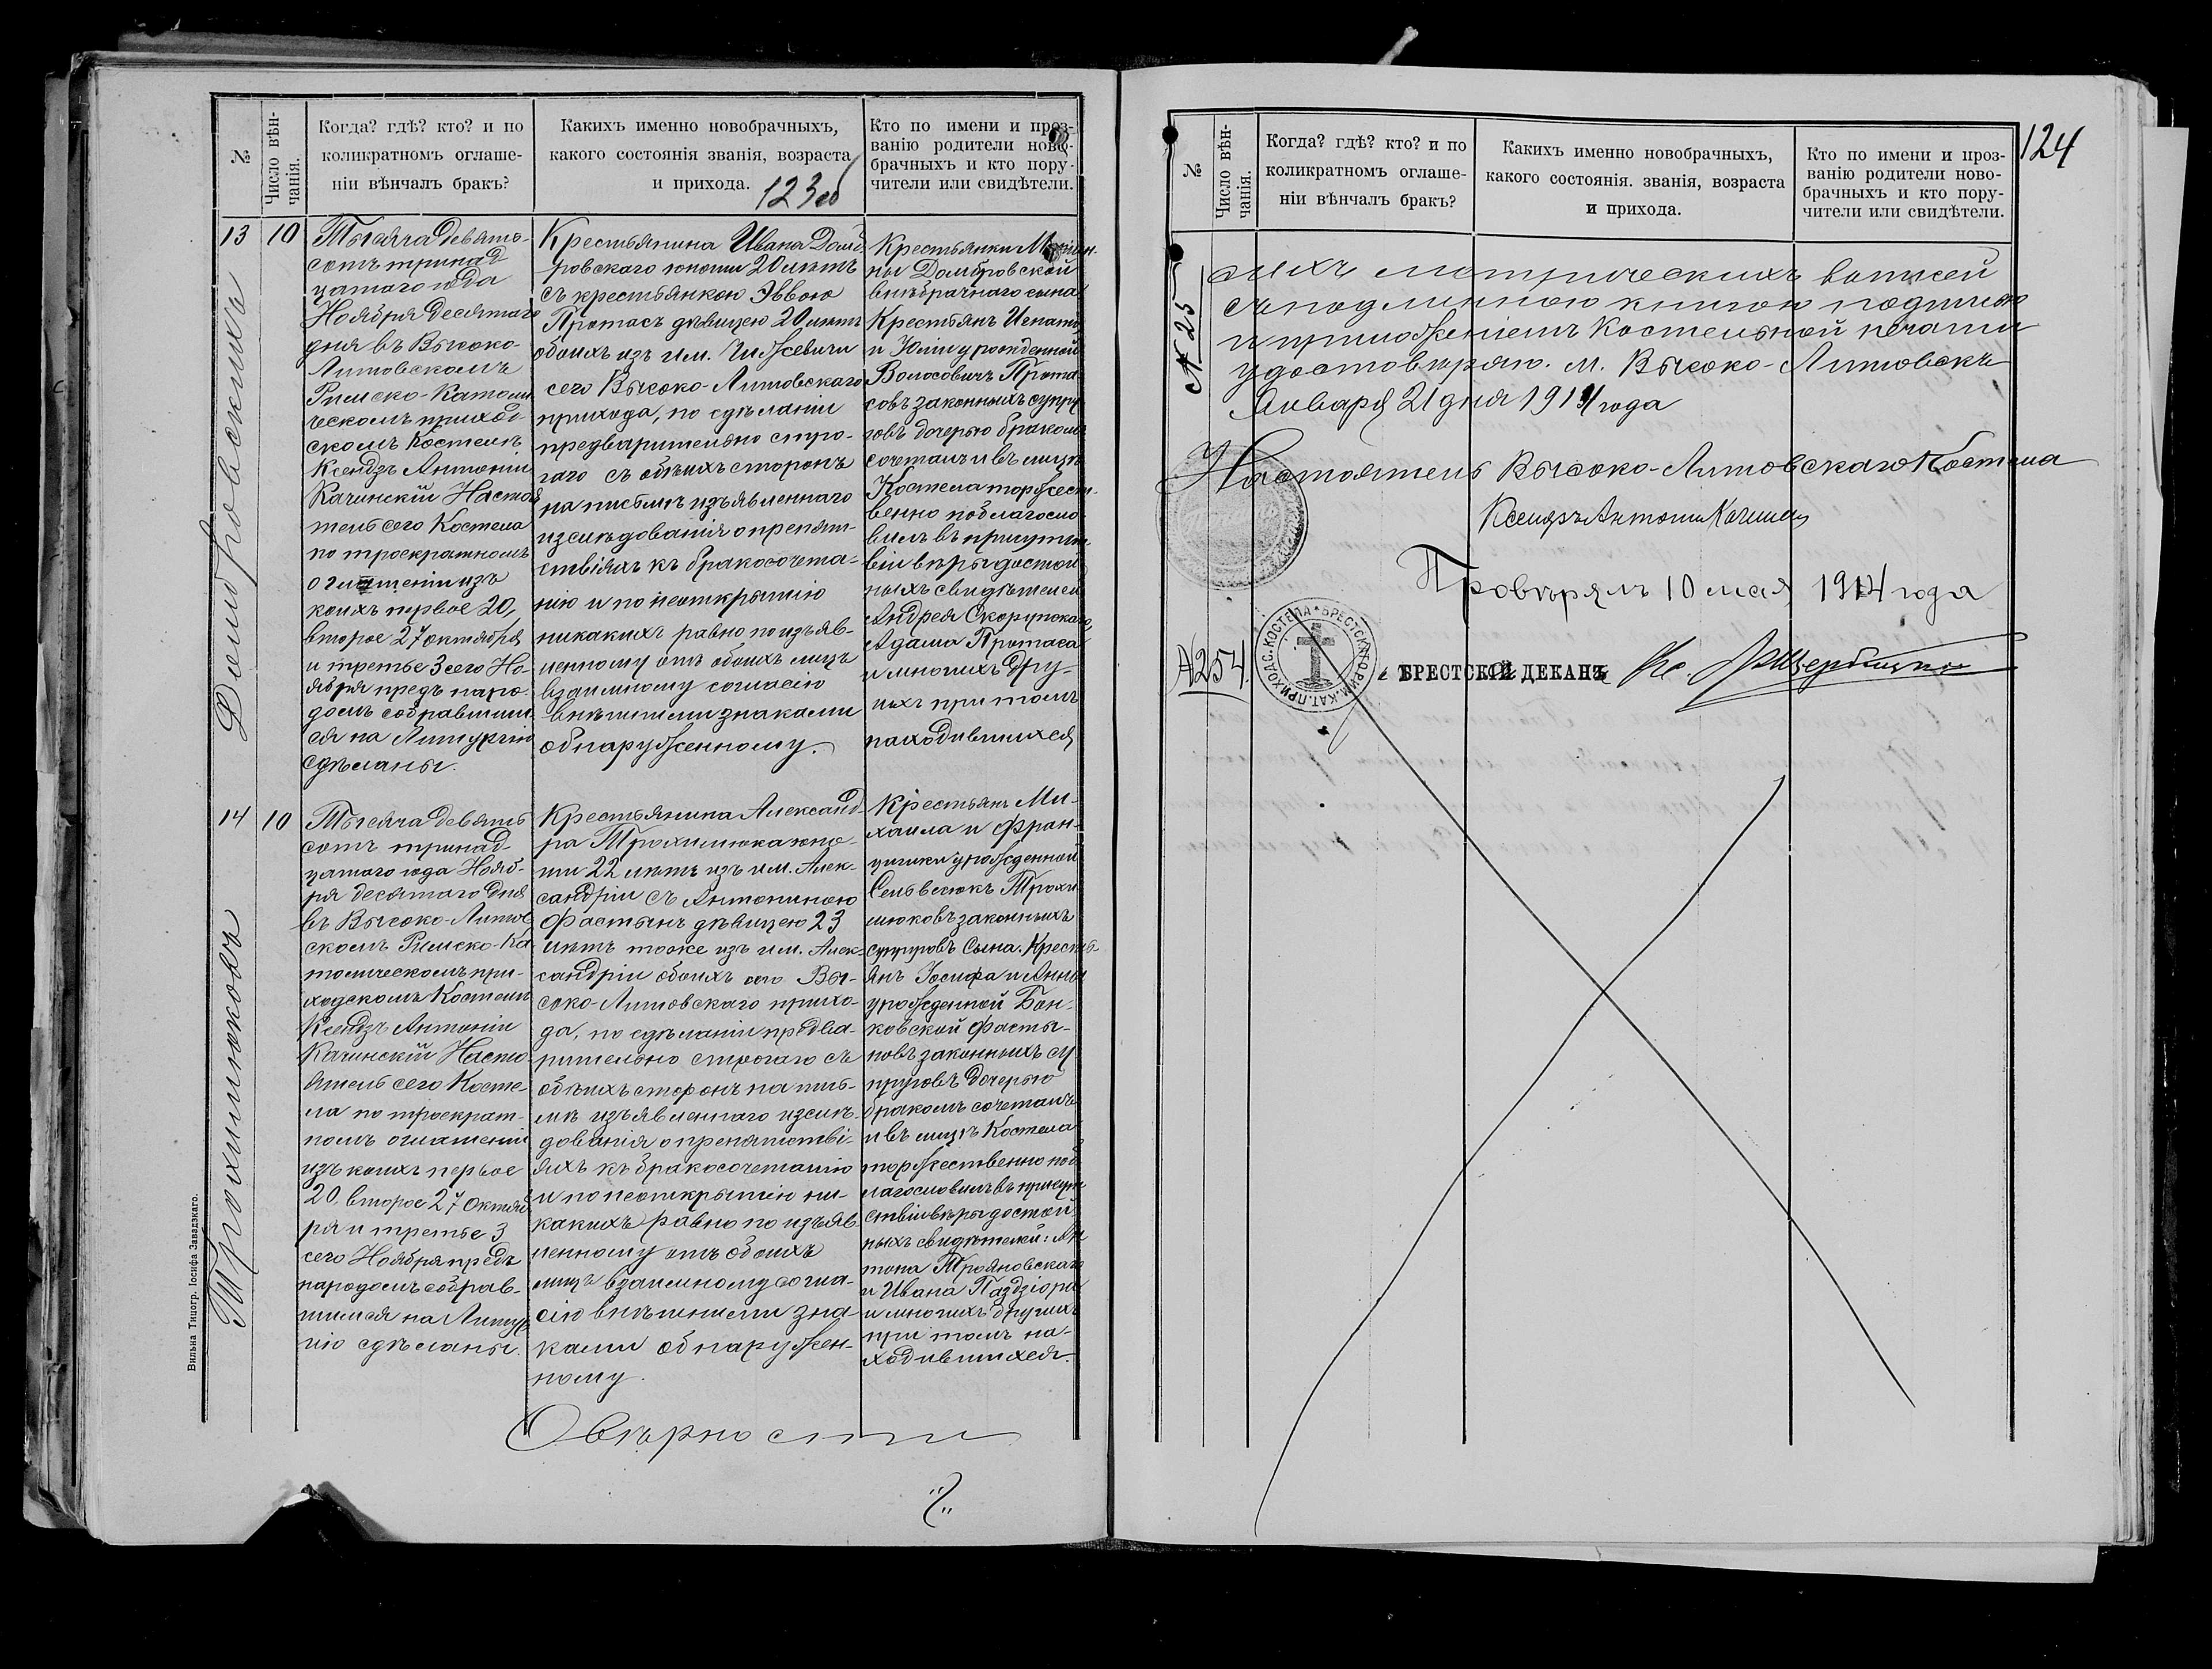 №
Число вѣн-
чанія.
Когда? гдѣ? кто? и по
коликратномъ оглаше-
ніи вѣнчалъ бракъ?
Какихъ именно новобрачныхъ,
какого состоянія званія, возраста
и прихода.
123 об
Кто по имени и проз-
ванію родители ново-
брачныхъ и кто пору-
чители или свидѣтели.
13
10
Домбровскихъ
Тысяча девять-
сотъ тринад
цатаго года
Ноября десятаго
дня въ Высоко-
Литовскомъ
Римско-Католи
ческомъ приход-
скомъ Костелѣ
Ксендзъ Антоній
Качинскій Настоя
тель сего Костела
по троекратномъ
оглашеніи изъ
коихъ первое 20,
второе 27 октября
и третье 3 сего Но-
ября предъ наро-
домъ собравшим
ся на Литургію
сдѣланы.
Крестьянина Ивана Домб
ровскаго юноши 20 лѣтъ
съ крестьянкою Эввою
Протасъ дѣвицею 20 лѣтъ
обоихъ изъ им. Чижевичи
сего Высоко-Литовскаго
прихода, по сдѣланіи
предварительно стро-
гаго съ обѣихъ сторонъ
на письмѣ изъявленнаго
изслѣдованія о препят-
ствіяхъ къ бракосочета-
нію и по неоткрытію
никакихъ равно по изъяв-
ленному отъ обоихъ лицъ
взаимному согласію
внѣшними знаками
обнаруженному.
Крестьянки
ны Домбровской
внѣбрачнаго сына
Крестьянъ Игнатія
и Юліи урожденной
Волосовичъ Прота
совъ законныхъ супру
говъ дочерью бракомъ
сочеталъ и въ лицѣ
Костела торжест-
венно поблагосло
вилъ въ присутст
віи вѣры достой
ныхъ свидѣтелей
Андрея Скорупскаго,
Адама Протаса
и многихъ дру-
гихъ при томъ
находившихся
14
10
Трохимюковъ
Тысяча девять
сотъ тринад-
цатаго года Нояб-
ря десятаго дня
въ Высоко-Литов
скомъ Римско-Ка
толическомъ при-
ходскомъ Костелѣ
Ксендзъ Антоній
Качинскій Насто-
ятель сего Косте-
ла по троекрат-
номъ оглашеніи
изъ коихъ первое
20, второе 27 Октяб
ря и третье 3
сего Ноября предъ
народомъ собрав-
шимся на Литур
гію сдѣланы.
Крестьянина Александ-
ра Трохимюка юно-
ши 22 лѣтъ изъ им. Алек-
сандріи съ Антониною
Фастынъ дѣвицею 23
лѣтъ тоже изъ им. Алек-
сандріи обоихъ сего Вы-
соко-Литовскаго прихо-
да, по сдѣланіи предва-
рительно строгаго съ
обѣихъ сторонъ на пись-
мѣ изъявленнаго изслѣ-
дованія о препятстві-
яхъ къ бракосочетанію
и по неоткрытію ни-
какихъ равно по изъяв-
ленному отъ обоихъ
лицъ взаимному согла-
сію внѣшними зна-
ками обнаружен-
ному.
Крестьянъ Ми-
хаила и Фран-
цишки урожденной
Сельвесюкъ Трохи
мюковъ законныхъ
супруговъ Сына. Кресть-
янъ Іосифа и Анны
урожденной Бон-
ковской Фасты-
новъ законныхъ су
пруговъ дочерью
бракомъ сочеталъ
и въ лицѣ Костела
торжественно поб
лагословилъ въ присут
ствіи вѣры достой
ныхъ свидѣтелей: Ан
тона Трояновскаго
и Ивана Паздзіора
и многихъ другихъ
при томъ на-
ходившихся.
О вѣрности
Вильна Типогр. Іосифа Завадзкаго.
124
№
Число вѣн-
чанія.
Когда? гдѣ? кто? и по
коликратномъ оглаше-
ніи вѣнчалъ бракъ?
Какихъ именно новобрачныхъ,
какого состоянія. званія, возраста
и прихода.
Кто по имени и проз-
ванію родители ново-
брачныхъ и кто пору-
чители или свидѣтели.
№ 25
сихъ метрическихъ
съ подлинною книгою подписью
и приложеніемъ Костельной печати
удостовѣряю. м. Высоко-Литовскъ
Января 21 дня 1914 года
Настоятель Высоко-Литовскаго Костела
Ксендзъ Антоній
Провѣрялъ 10 мая 1914 года
№ 254.
БРЕСТСКАГО РИМ. КАТ. ПРИХОДС. КОСТЕЛА
БРЕСТСКІЙ ДЕКАНЪ Кс.